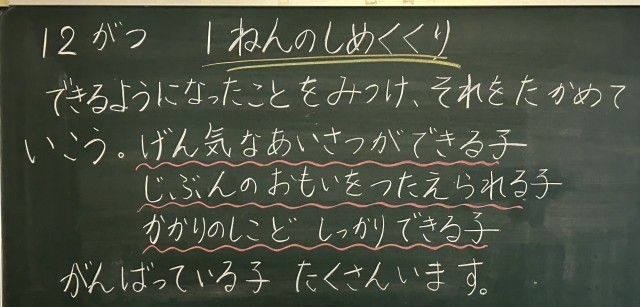 12がつ 1ねんのしめくくり
できるようになったことをみつけ、それをたかめて
いこう。げん気なあいさつができる子
じぶんのおもいをつたえられる子
かかりのしごと しっかりできる子
がんばっている子 たくさんいます。